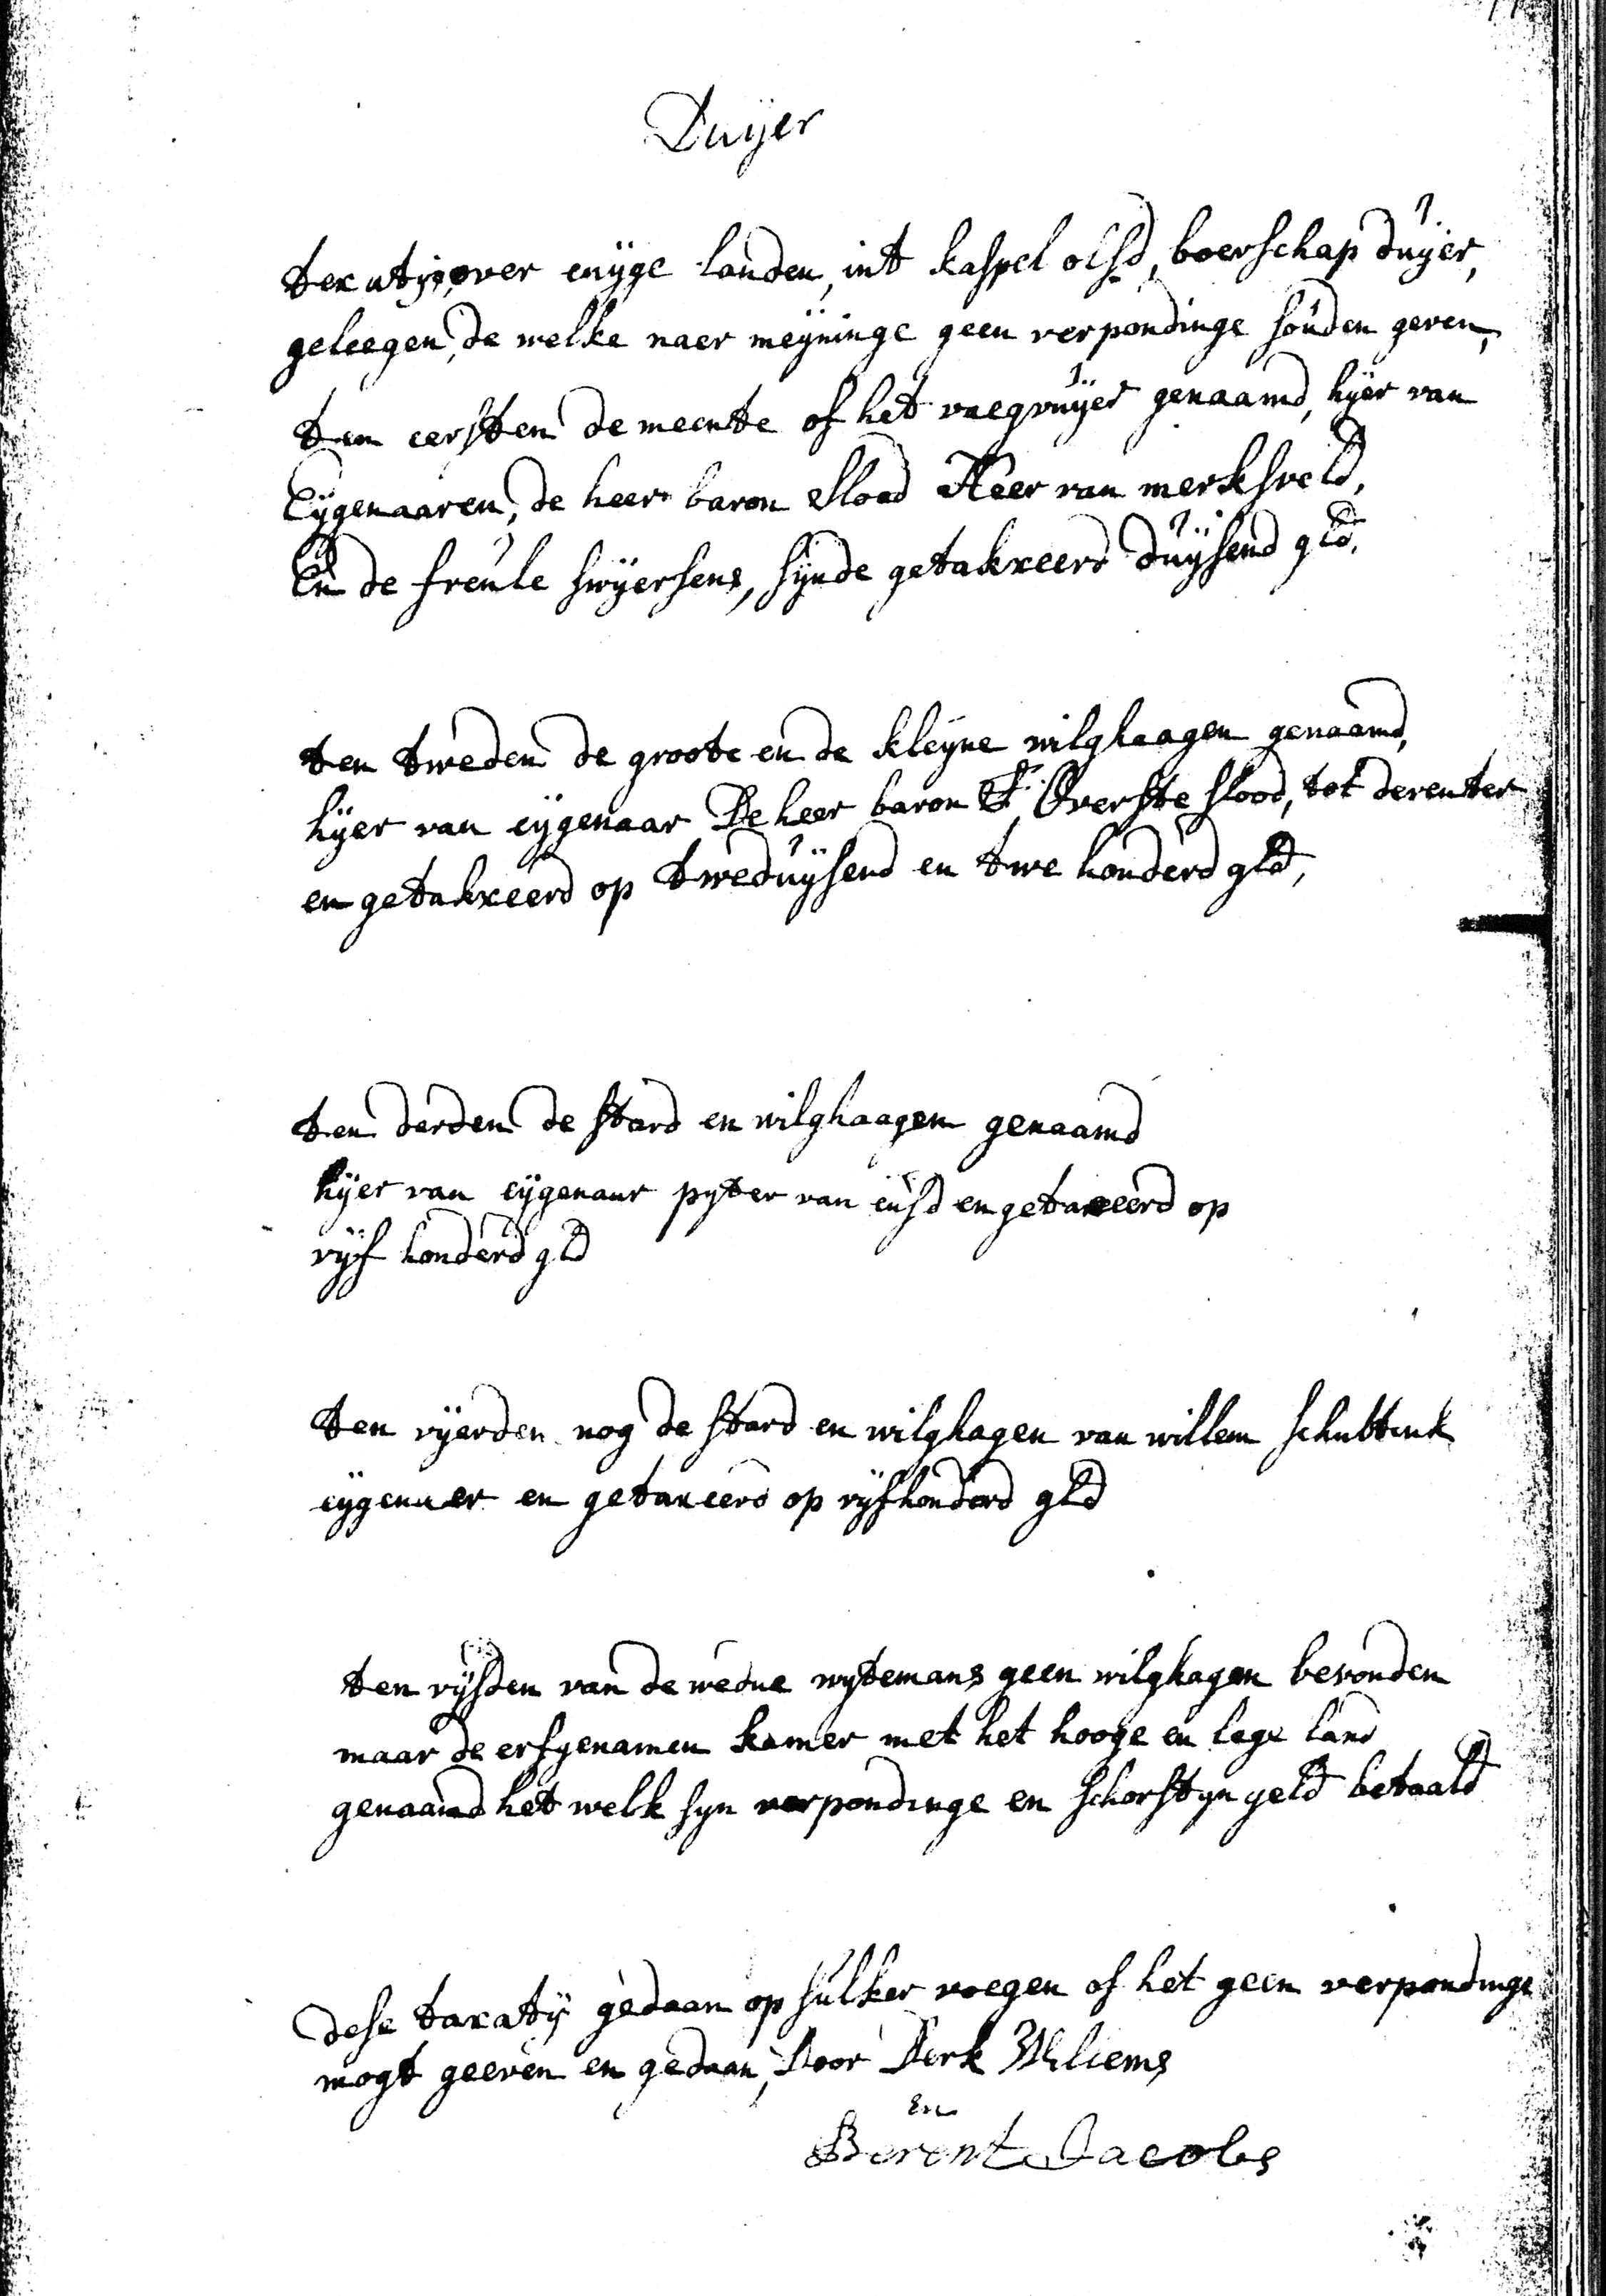 Duÿer
texatÿe over enÿge landen, int kaspel olsd, boerschap duÿer,
geleegen, de welke naer meÿninge geen verpondinge souden geven,
ten eersten de meente of het vaegvuÿer genaamd, hÿer van
Eÿgenaaren, de heer baron Sload Heer van merksveld,
En de freule swÿersens, sÿnde getakxeerd duÿsend gld,
ten tweden de groote en de kleÿne wilghaagen genaamd,
hÿer van eÿgenaar De heer baron Overste slood, tot deventer
en getakxeerd op tweduÿsend en twe honderd gld,
ten derden de stard en wilghaagen genaamd
hÿer van eÿgenaar pyter van eusd en getaxeerd op
vÿf honderd gld
ten vÿerden nog de stard en wilghagen van willem schubbink
eÿgenaer en getaxeerd op vÿfhonderd gld
ten vÿfden van de wedue wytemans geen wilghagen bevonden
maar de erfgenamen kamer met het hooge en lege land
genaamd het welk syn verpondinge en schorstyn geld betaald
dese taxatÿ gedaan op sulker voegen of het geen verpondinge
mogt geeven en gedaan, Door Derk Willems
En
Berent Jacobs